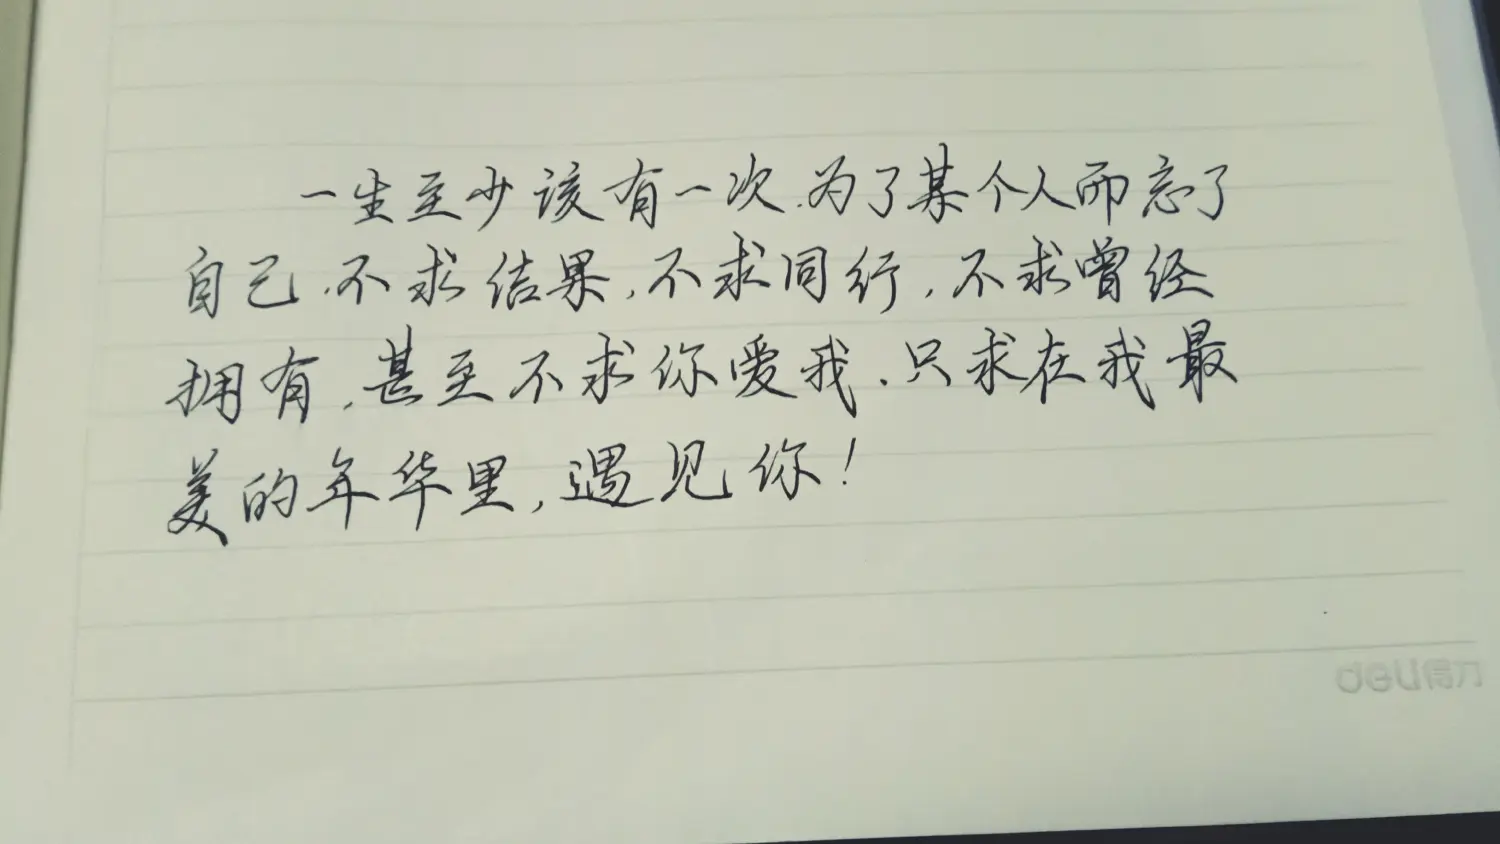 一生至少该有一次,为了某个人而忘了
自己,不求结果,不求同行,不求曾经
拥有,甚至不求你爱我,只求在我最
美的年华里,遇见你!
deli得力